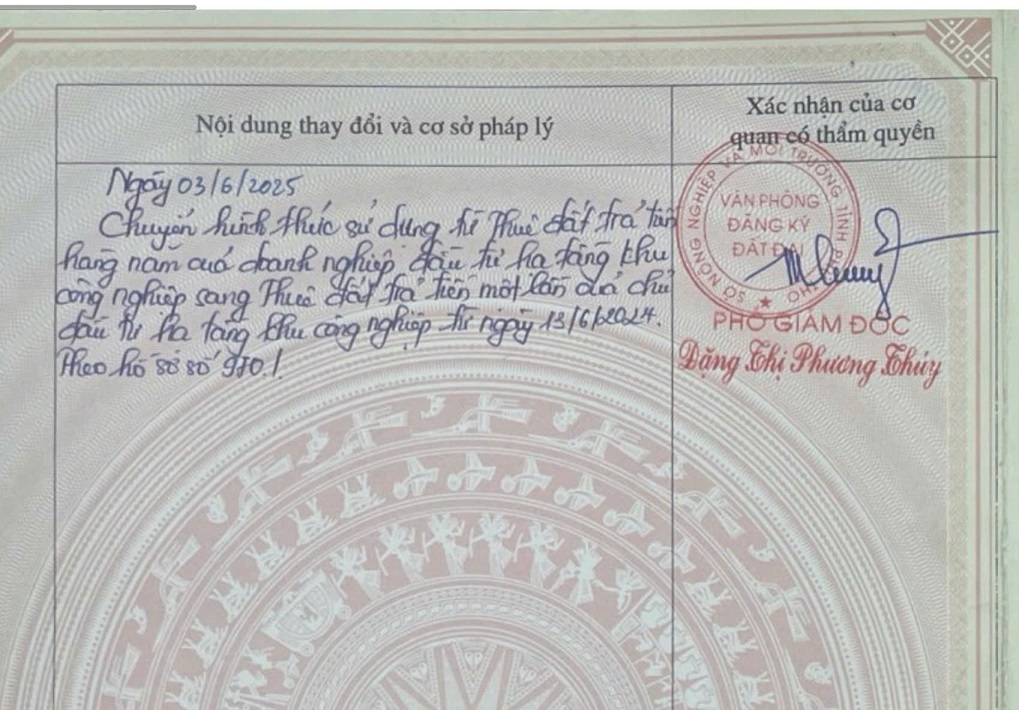 Nội dung thay đổi và cơ sở pháp lý
Xác nhận của cơ
quan có thẩm quyền
Ngày 03/6/2025
Chuyển hình thức sử dụng từ Thuê đất trả tiền
hàng năm của doanh nghiệp đầu tư hạ tầng khu
công nghiệp sang Thuê đất trả tiền một lần của chủ
đầu tư hạ tầng khu công nghiệp từ ngày 13/6/2024.
Theo hồ sơ số
SỞ NÔNG NGHIỆP VÀ MÔI TRƯỜNG TỈNH PHÚ THỌ
VĂN PHÒNG
ĐĂNG KÝ
ĐẤT ĐAI
PHÓ GIÁM ĐỐC
Đặng Thị Phương Thúy